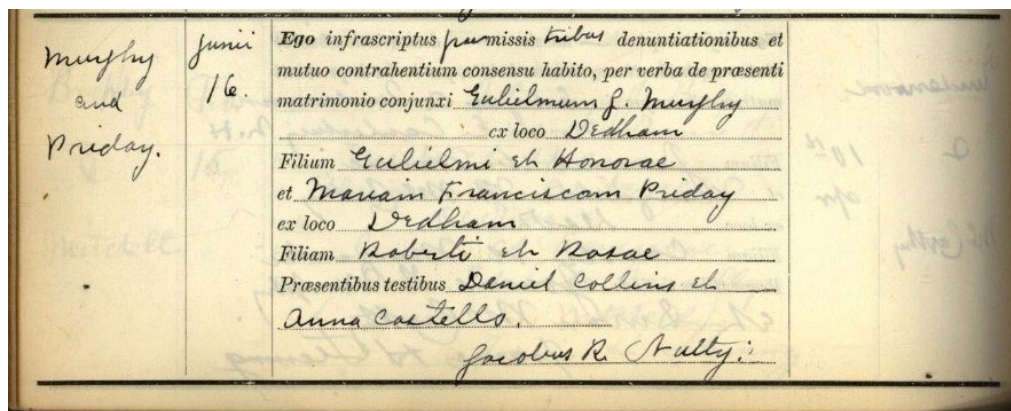 Murphy
and
Priday.
Junii
16.
Ego infrascriptus præmissis tribus denuntiationibus et
mutuo contrahentium consensu habito, per verba de præsenti
matrimonio conjunxi Gulielmum J. Murphy
ex loco Dedham
Filium Gulielmi et Honorae
et Mariam Franciscam Priday
ex loco Dedham
Filiam Roberti et Rosae
Præsentibus testibus Daniel Collins et
Anna Costello.
Jacobus R. Nulty.